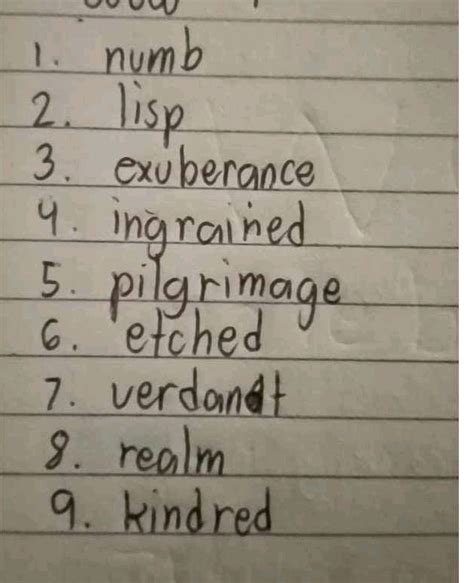 1. numb
2. lisp
3. exuberance
4. ingrained
5. pilgrimage
6. etched
7. verdant
8. realm
9. kindred